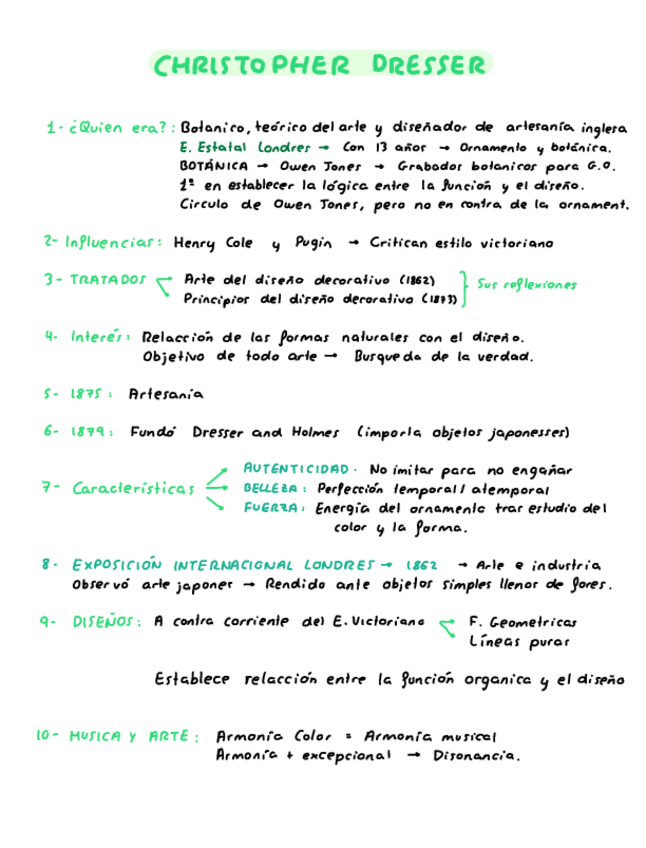 CHRISTOPHER DRESSER
1- ¿Quien era?: Botanico, teórico del arte y diseñador de artesanía inglesa
E. Estatal Londres → Con 13 años → Ornamento y botánica.
BOTÁNICA → Owen Jones → Grabados botanicos para G.O.
1º en establecer la lógica entre la función y el diseño.
Circulo de Owen Jones, pero no en contra de la ornament.
2- Influencias: Henry Cole y Pugin → Critican estilo victoriano
3- TRATADOS Arte del diseño decorativo (1862)
Principios del diseño decorativo (1873) Sus reflexiones
4- Interés: Relacción de las formas naturales con el diseño.
Objetivo de todo arte → Busqueda de la verdad.
5- 1875: Artesanía
6- 1879: Fundó Dresser and Holmes (importa objetos japonesses)
7- Características AUTENTICIDAD. No imitar para no engañar
BELLEZA: Perfección temporal / atemporal
FUERZA: Energía del ornamento tras estudio del
color y la forma.
8- EXPOSICIÓN INTERNACIONAL LONDRES → 1862 → Arte e industria
Observó arte japones → Rendido ante objetos simples llenos de flores.
9- DISEÑOS: A contra corriente del E. Victoriano F. Geometricas
Líneas puras
Establece relacción entre la función organica y el diseño
10- MUSICA Y ARTE: Armonía Color = Armonía musical
Armonía + excepcional → Disonancia.